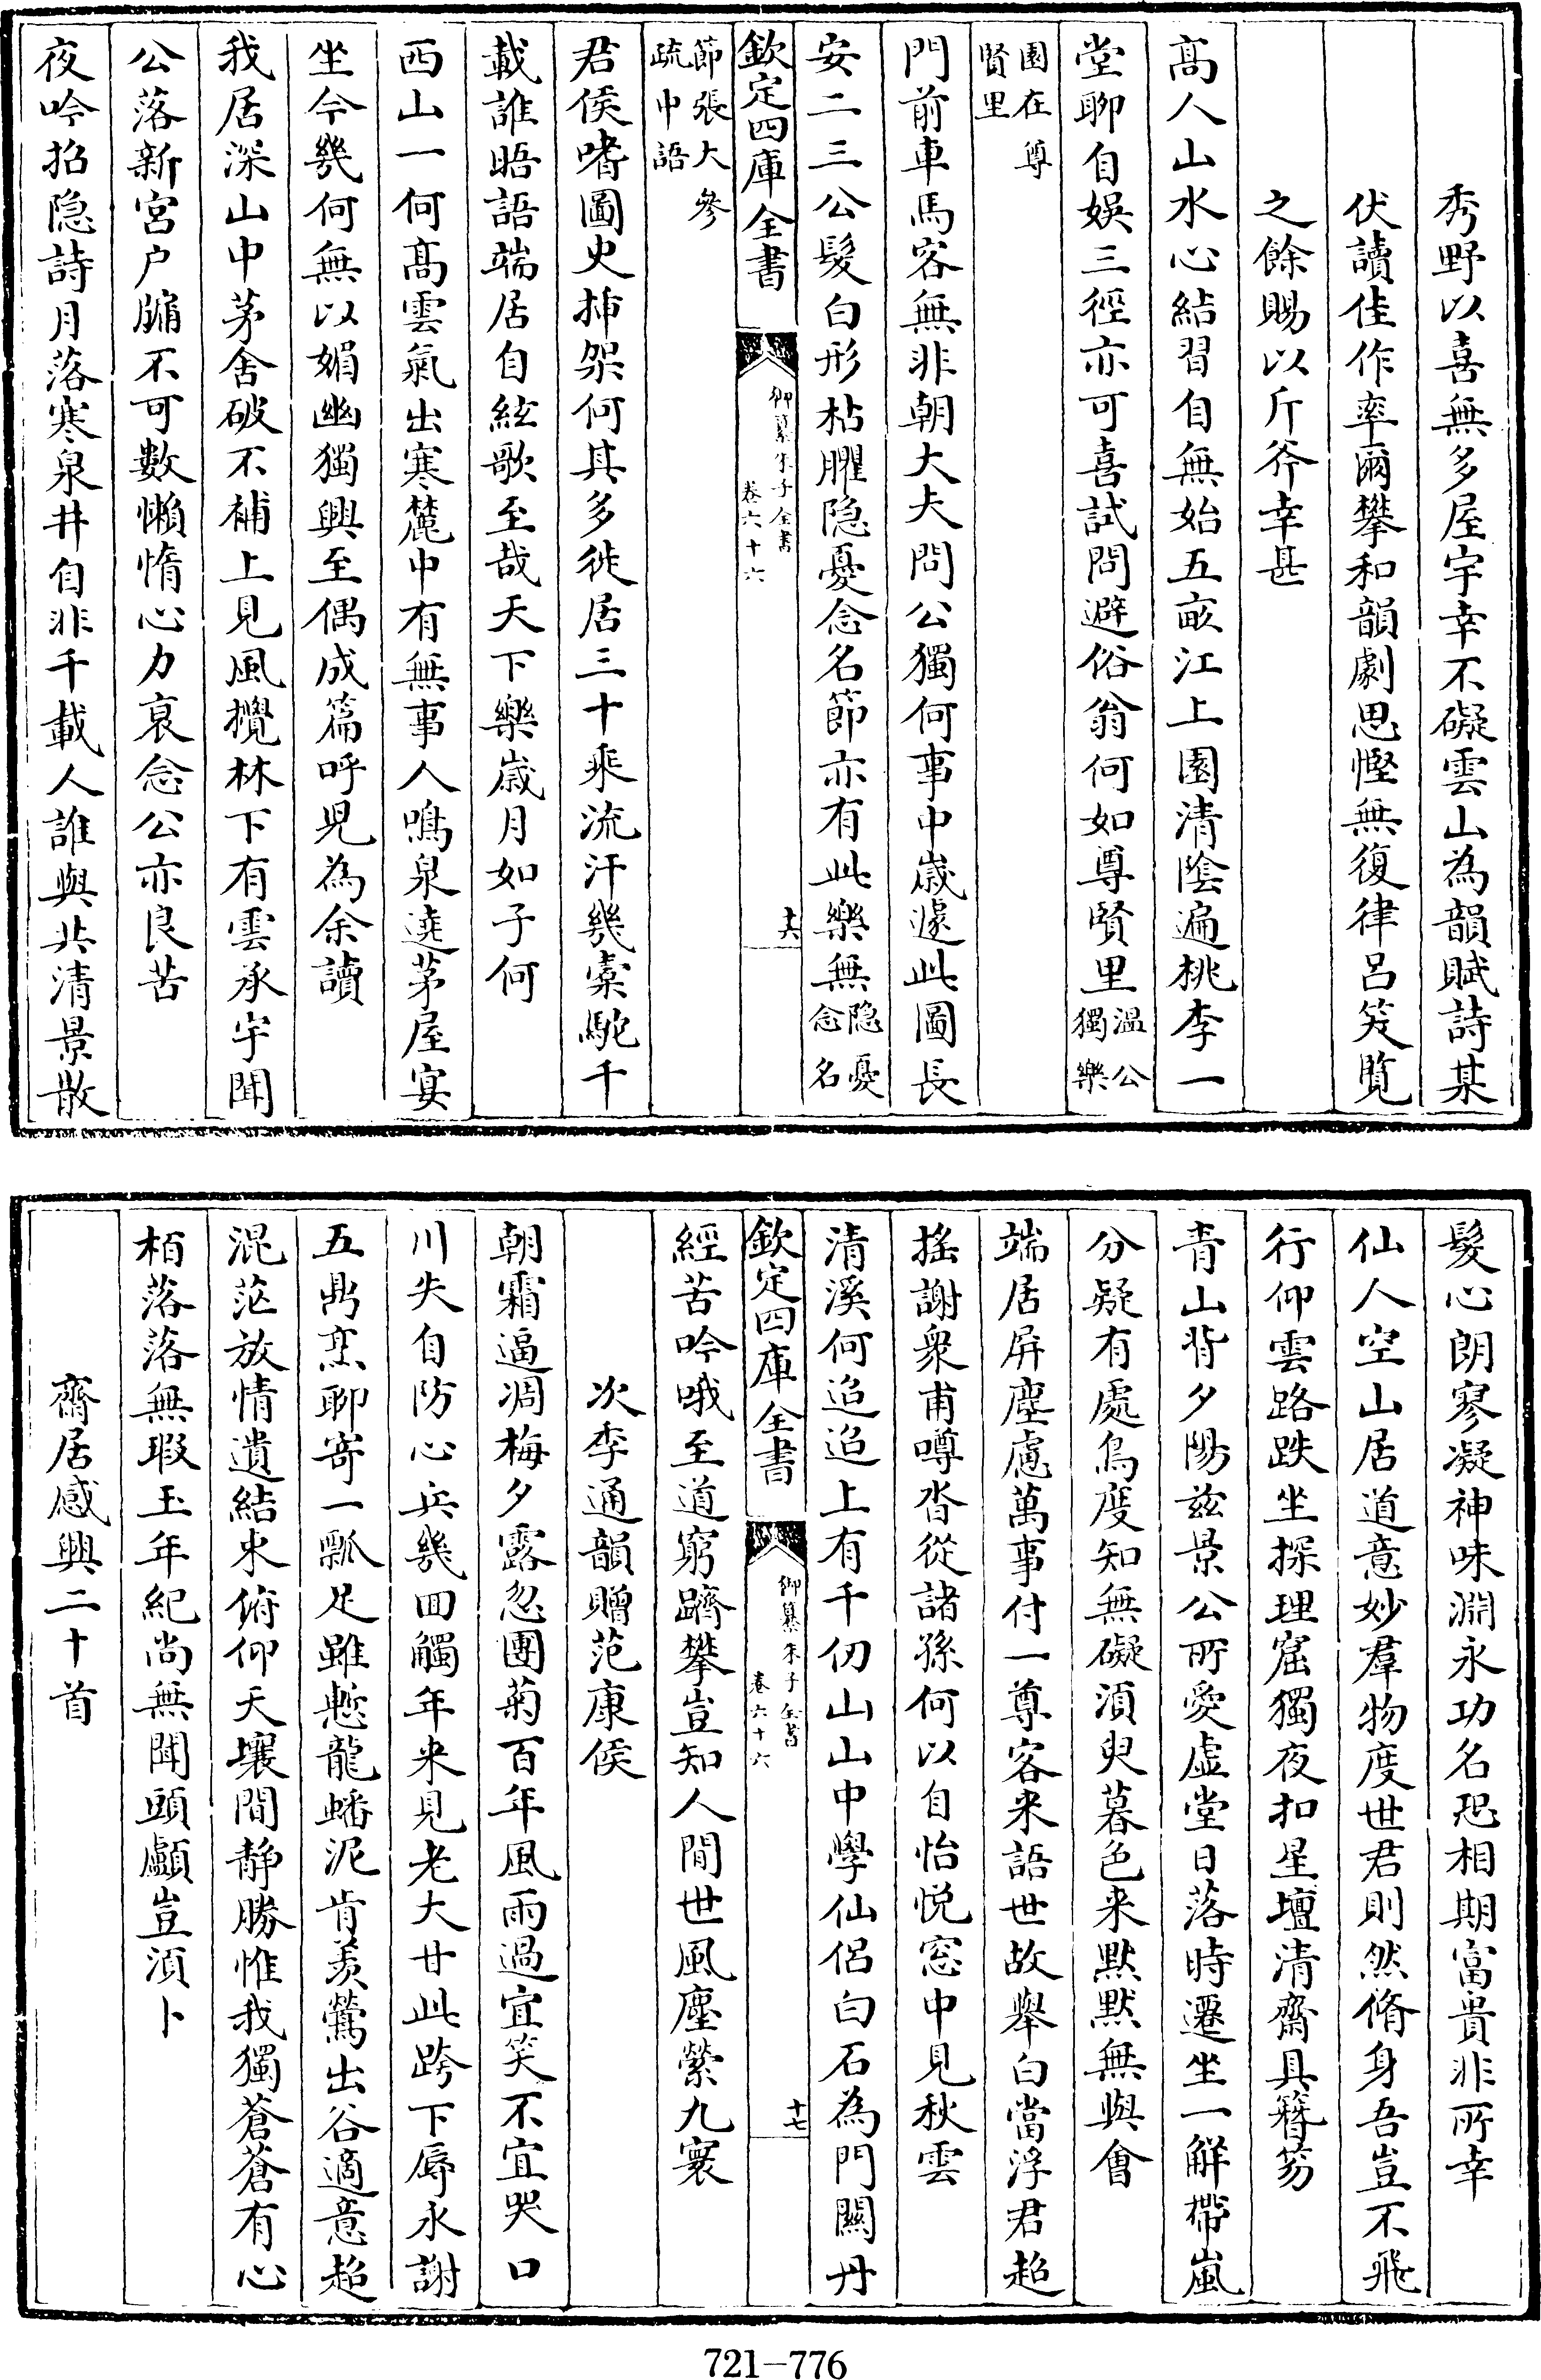 秀野以喜無多屋宇幸不礙雲山為韻賦詩某
伏讀佳作率爾攀和韻劇思慳無復律呂笑覽
之餘賜以斤斧幸甚
高人山水心結習自無始五畝江上園清陰遍桃李一
堂聊自娛三徑亦可喜試問避俗翁何如尊賢里溫公獨樂
園在尊賢里
門前車馬客無非朝大夫問公獨何事中歲遽此圖長
安二三公髮白形枯臞隱憂念名節亦有此樂無隱憂念名
欽定四庫全書
御纂朱子全書
卷六十六
十六
節張大參疏中語
君侯嗜圖史揷架何其多徙居三十乘流汗幾橐駝千
載誰晤語端居自絃歌至哉天下樂歲月如子何
西山一何高雲氣出寒麓中有無事人鳴泉遶茅屋宴
坐今幾何無以媚幽獨興至偶成篇呼兒為余讀
我居深山中茅舍破不補上見風攪林下有雲承宇聞
公落新宮户牖不可數懶惰心力衰念公亦良苦
夜吟招隱詩月落寒泉井自非千載人誰與共清景散
髮心朗寥凝神味淵永功名恐相期富貴非所幸
仙人空山居道意妙羣物度世君則然脩身吾豈不飛
行仰雲路趺坐探理窟獨夜扣星壇清齋具簪笏
青山背夕陽兹景公所愛虛堂日落時遷坐一觧帶嵐
分疑有處鳥度知無礙湏臾暮色来默默無與會
端居屏塵慮萬事付一尊客来語世故舉白當浮君超
搖謝衆甫噂沓從諸孫何以自怡悅窓中見秋雲
清溪何迢迢上有千仞山山中學仙侶白石為門關丹
欽定四庫全書
御纂朱子全書
卷六十六
十七
經苦吟哦至道窮躋攀豈知人間世風塵縈九寰
次李通韻贈范康侯
朝霜逼凋梅夕露忽團菊百年風雨過宜笑不宜哭口
川失自防心兵幾回觸年来見老大甘此跨下辱永謝
五鼎烹聊寄一瓢足雖慙龍蟠泥肯羡鶯出谷適意超
混茫放情遺結束俯仰天壤間静勝惟我獨蒼蒼有心
栢落落無瑕玉年紀尚無聞頭顱豈湏卜
齋居感興二十首
721-776